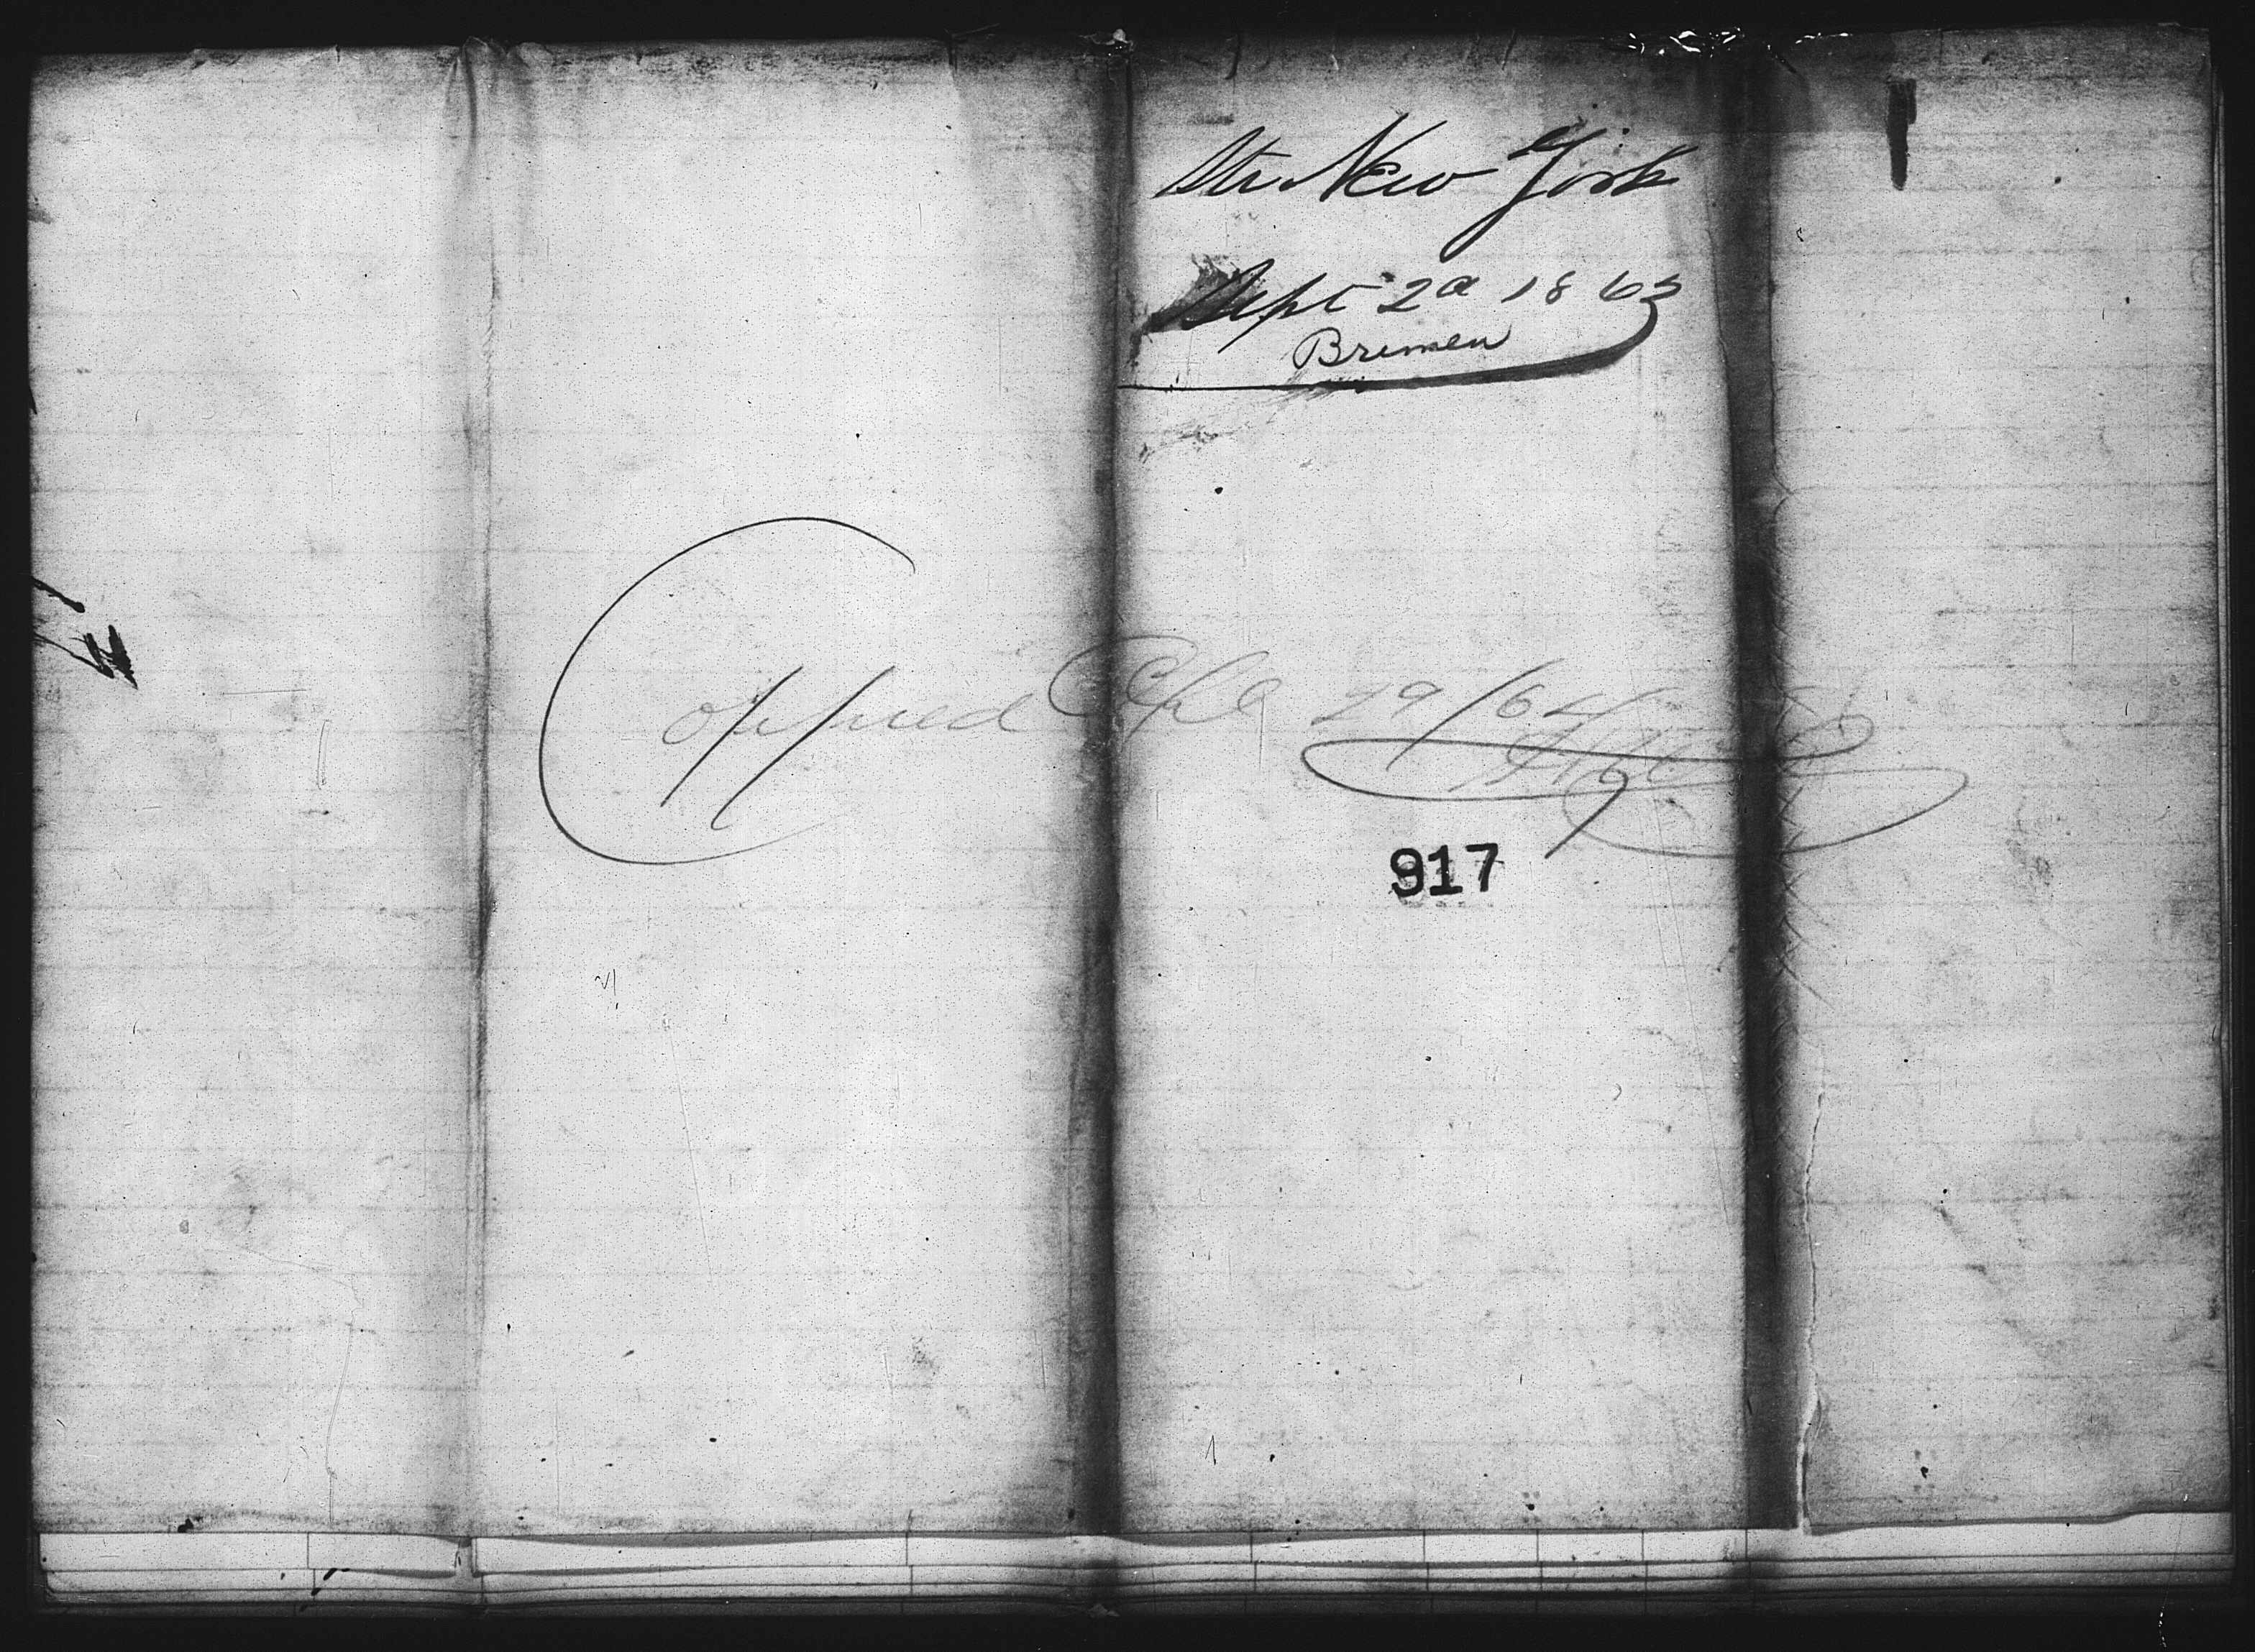 Str New York
Sept 2d 1863
Bremen
Coppied Apl 29/64
917